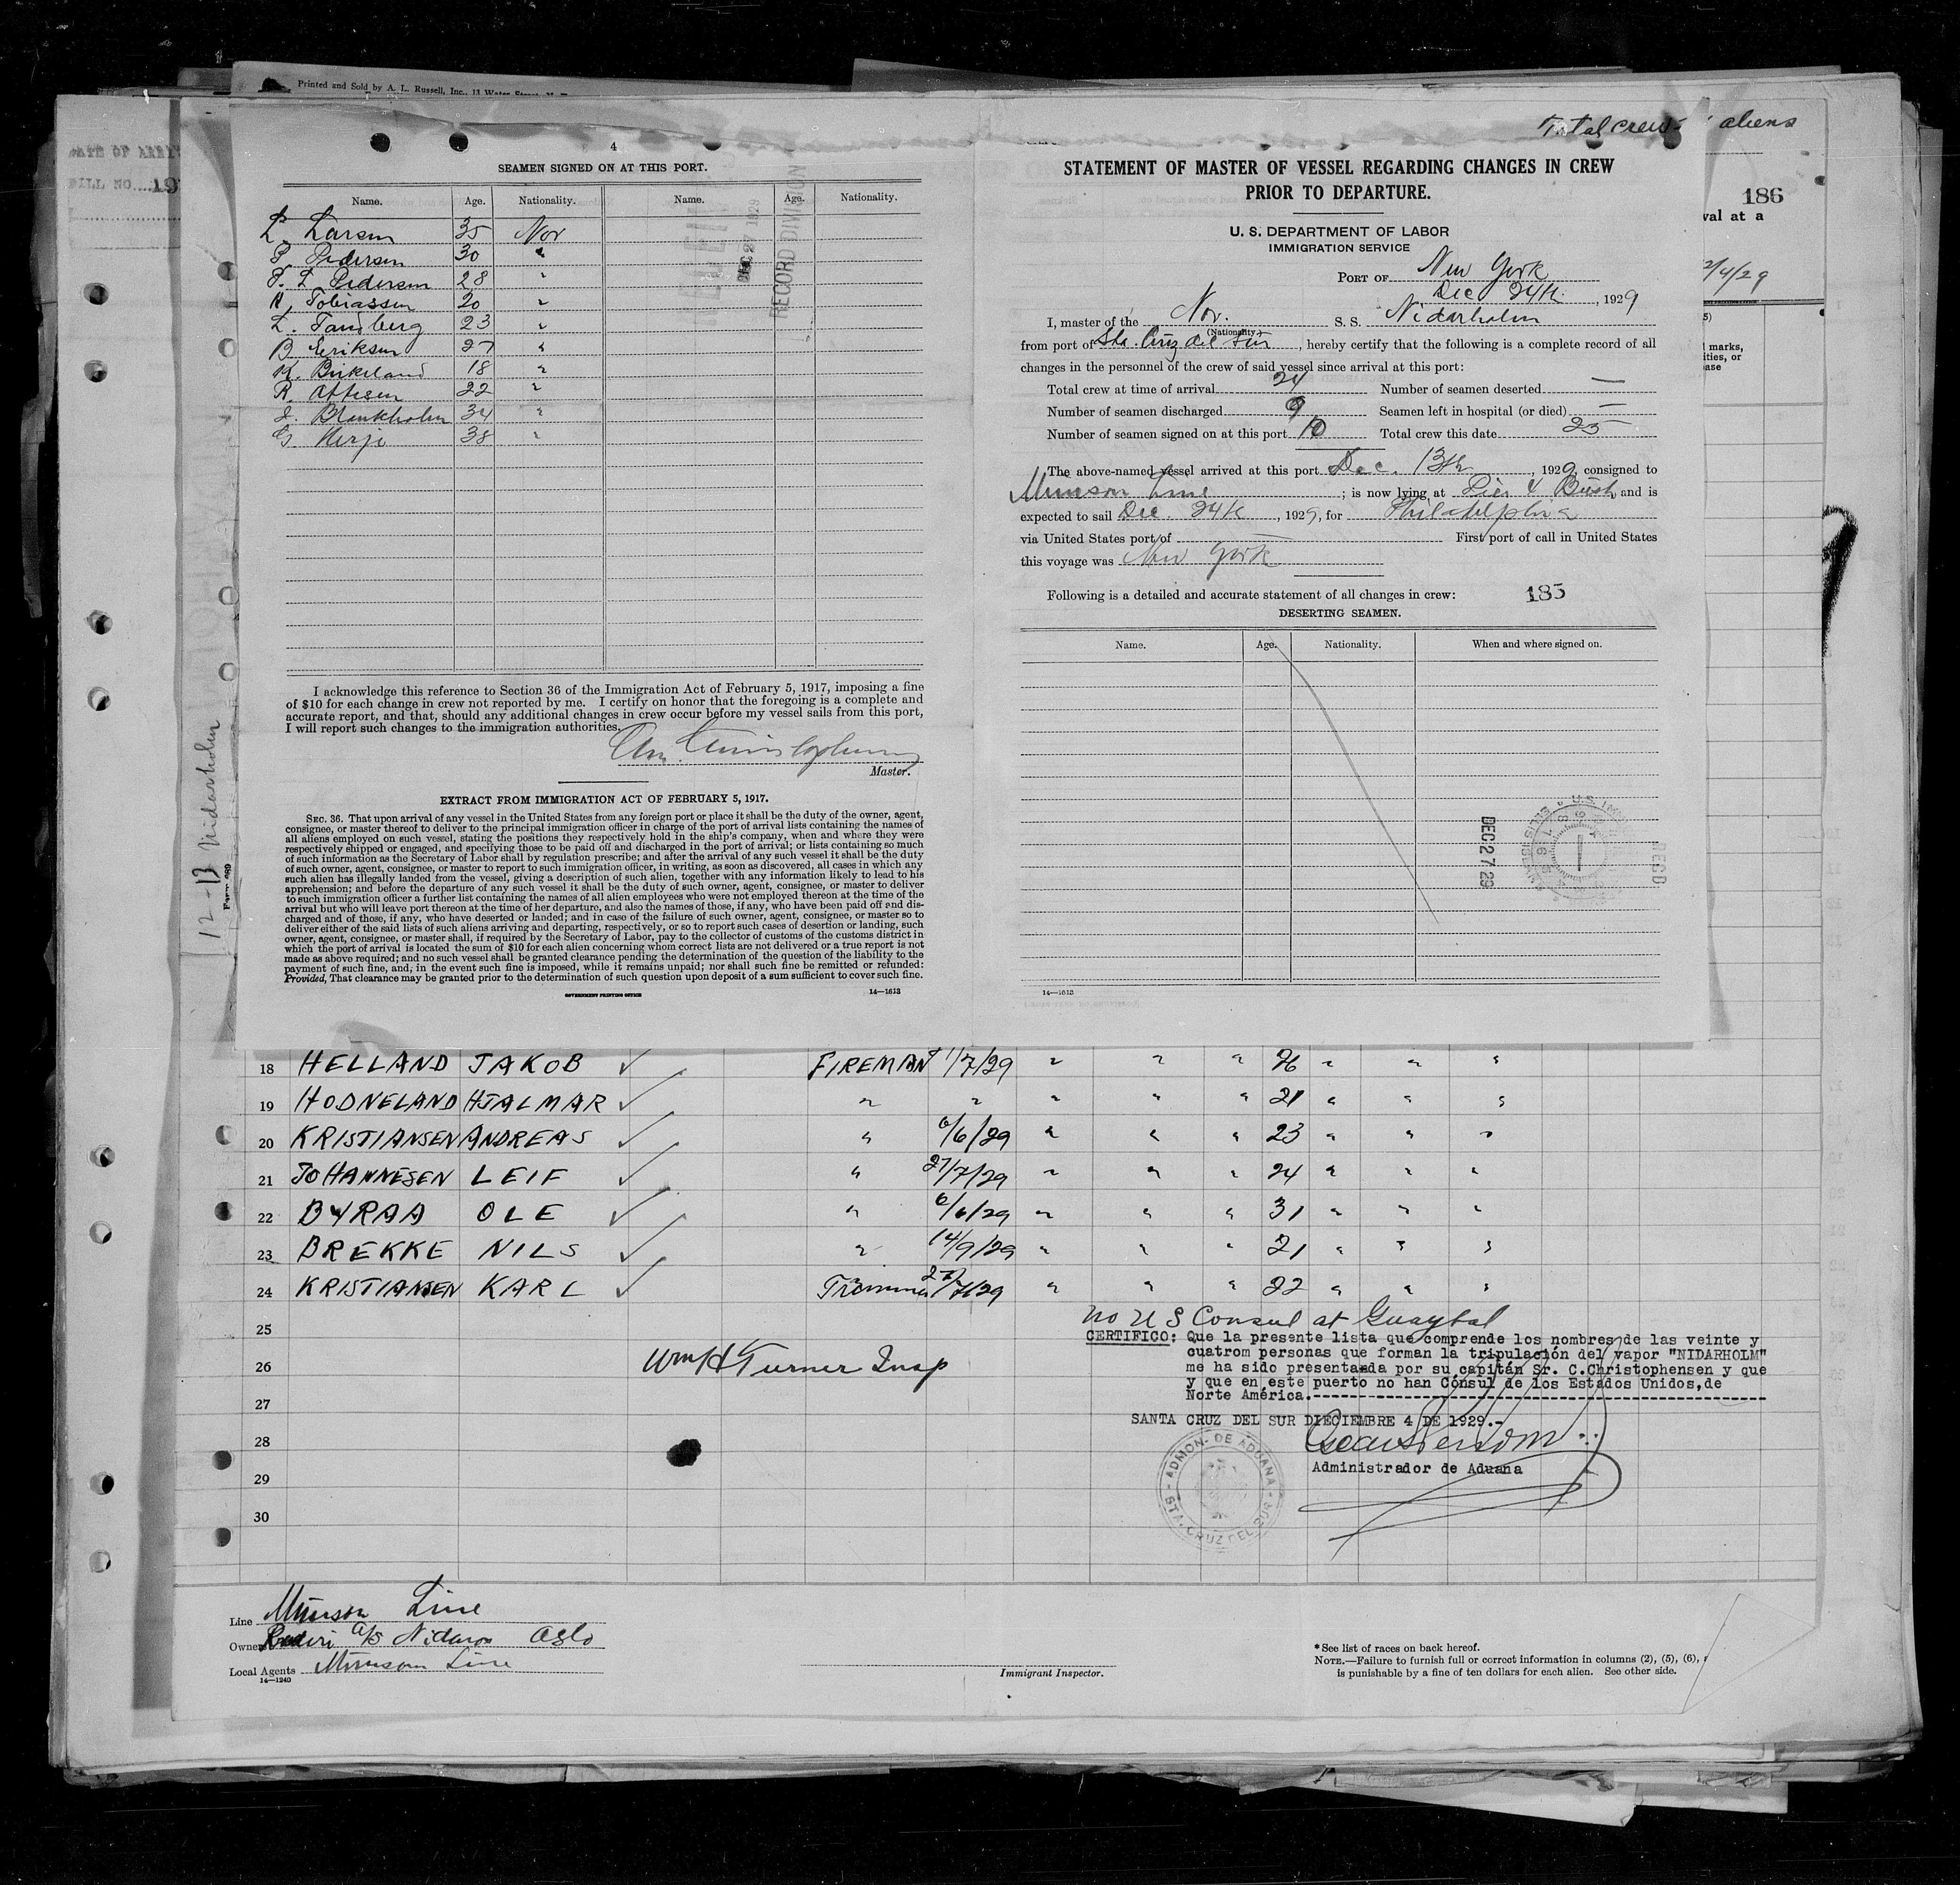 Printed and Sold by A. L. Russell, Inc., 13 Water Street
Total crew aliens
4
SEAMEN SIGNED ON AT THIS PORT.
Name. Age. Nationality. Name. Age. Nationality.
L. Larsen 35 Nor
P. Pedersen 30 "
P. L Pedersen 28 "
Tobiassen 20 "
L. Tandberg 23 "
B Eriksen 27 "
K. Birkeland 18 "
R. 22 "
J. Blenkholm 34 "
G Herje 38 "
DEC 27 1929
RECORD DIVISION
I acknowledge this reference to Section 36 of the Immigration Act of February 5, 1917, imposing a fine
of $10 for each change in crew not reported by me. I certify on honor that the foregoing is a complete and
accurate report, and that, should any additional changes in crew occur before my vessel sails from this port,
I will report such changes to the immigration authorities.
Master.
EXTRACT FROM IMMIGRATION ACT OF FEBRUARY 5, 1917.
SEC. 36. That upon arrival of any vessel in the United States from any foreign port or place it shall be the duty of the owner, agent,
consignee, or master thereof to deliver to the principal immigration officer in charge of the port of arrival lists containing the names of
all aliens employed on such vessel, stating the positions they respectively hold in the ship's company, when and where they were
respectively shipped or engaged, and specifying those to be paid off and discharged in the port of arrival; or lists containing so much
of such information as the Secretary of Labor shall by regulation prescribe; and after the arrival of any such vessel it shall be the duty
of such owner, agent, consignee, or master to report to such immigration officer, in writing, as soon as discovered, all cases in which any
such alien has illegally landed from the vessel, giving a description of such alien, together with any information likely to lead to his
apprehension; and before the departure of any such vessel it shall be the duty of such owner, agent, consignee, or master to deliver
to such immigration officer a further list containing the names of all alien employees who were not employed thereon at the time of the
arrival but who will leave port thereon at the time of her departure, and also the names of those, if any, who have been paid off and dis-
charged and of those, if any, who have deserted or landed; and in case of the failure of such owner, agent, consignee, or master so to
deliver either of the said lists of such aliens arriving and departing, respectively, or so to report such cases of desertion or landing, such
owner, agent, consignee, or master shall, if required by the Secretary of Labor, pay to the collector of customs of the customs district in
which the port of arrival is located the sum of $10 for each alien concerning whom correct lists are not delivered or a true report is not
made as above required; and no such vessel shall be granted clearance pending the determination of the question of the liability to the
payment of such fine, and, in the event such fine is imposed, while it remains unpaid; nor shall such fine be remitted or refunded:
Provided, That clearance may be granted prior to the determination of such question upon deposit of a sum sufficient to cover such fine.
GOVERNMENT PRINTING OFFICE 14—1613
12-13 Nidarholm
STATEMENT OF MASTER OF VESSEL REGARDING CHANGES IN CREW
PRIOR TO DEPARTURE.
U. S. DEPARTMENT OF LABOR
IMMIGRATION SERVICE
PORT OF New York
Dec 24th, 1929
I, master of the Nor. S. S. Nidarholm
(Nationality)
from port of Sta. Cruz del Sur, hereby certify that the following is a complete record of all
changes in the personnel of the crew of said vessel since arrival at this port:
Total crew at time of arrival 24 Number of seamen deserted —
Number of seamen discharged 9 Seamen left in hospital (or died) —
Number of seamen signed on at this port 10 Total crew this date 25
The above-named vessel arrived at this port Dec. 13th, 1929, consigned to
Munson Line; is now lying at Pier 4 Bush and is
expected to sail Dec. 24th, 1929, for Philadelphia
via United States port of — First port of call in United States
this voyage was New York
Following is a detailed and accurate statement of all changes in crew: 185
DESERTING SEAMEN.
Name. Age. Nationality. When and where signed on.
DEC 27 29
REC'D
14—1613
186
val at a
2/4/29
marks,
ities, or
ease
18 HELLAND JAKOB FIREMAN 1/7/29 " " " 26 " " "
19 HODNELAND HJALMAR " " " " " 21 " " "
20 KRISTIANSEN ANDREAS " 6/6/29 " " " 23 " " "
21 JOHANNESEN LEIF " 27/7/29 " " " 24 " " "
22 BYRAA OLE " 6/6/29 " " " 31 " " "
23 BREKKE NILS " 14/9/29 " " " 21 " " "
24 KRISTIANSEN KARL Trimmer 27/7/29 " " " 22 " " "
25
26
27
28
29
30
Wm H Turner Insp
no U S Consul at Guaybal
CERTIFICO: Que la presente lista que comprende los nombres de las veinte y
cuatrom personas que forman la tripulación del vapor "NIDARHOLM"
me ha sido presentanda por su capitán Sr. C.Christophensen y que
y que en este puerto no han Cónsul de los Estados Unidos,de
Norte América.
SANTA CRUZ DEL SUR DICIEMBRE 4 DE 1929.-
Administrador de Aduana
ADMON. DE ADUANA STA. CRUZ DEL SUR
Line Munson Line
Owner Rederi A/S Nidaros Oslo
Local Agents Munson Line
14—1240
Immigrant Inspector.
* See list of races on back hereof.
NOTE.—Failure to furnish full or correct information in columns (2), (5), (6),
is punishable by a fine of ten dollars for each alien. See other side.